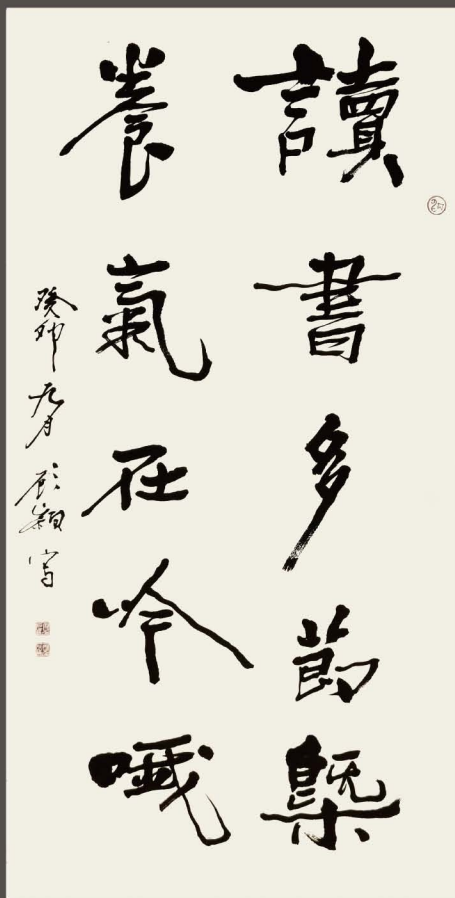 讀書多節槩
養氣在吟哦
癸卯九月顧穎寫